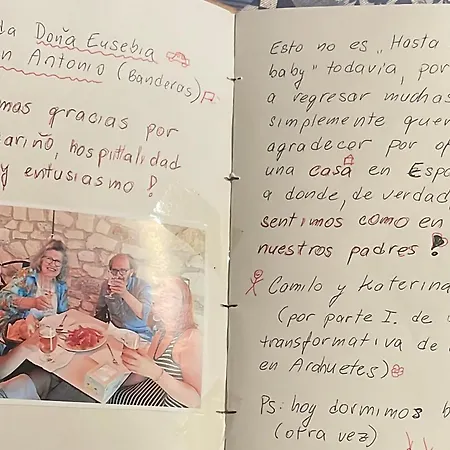 da Doña Eusebia
n Antonio (Banderas)
mos gracias por
cariño, hospitalidad
y entusiasmo!
Esto no es „Hasta
baby" todavía, por
a regresar muchas
simplemente quer
agradecer por of
una casa en Espa
a donde, de verdad,
sentimos como en
nuestros padres!
Camilo y Katerina
(por parte I. de
transformativa de
en Arahuetes)
PS: hoy dormimos b
(otra vez)